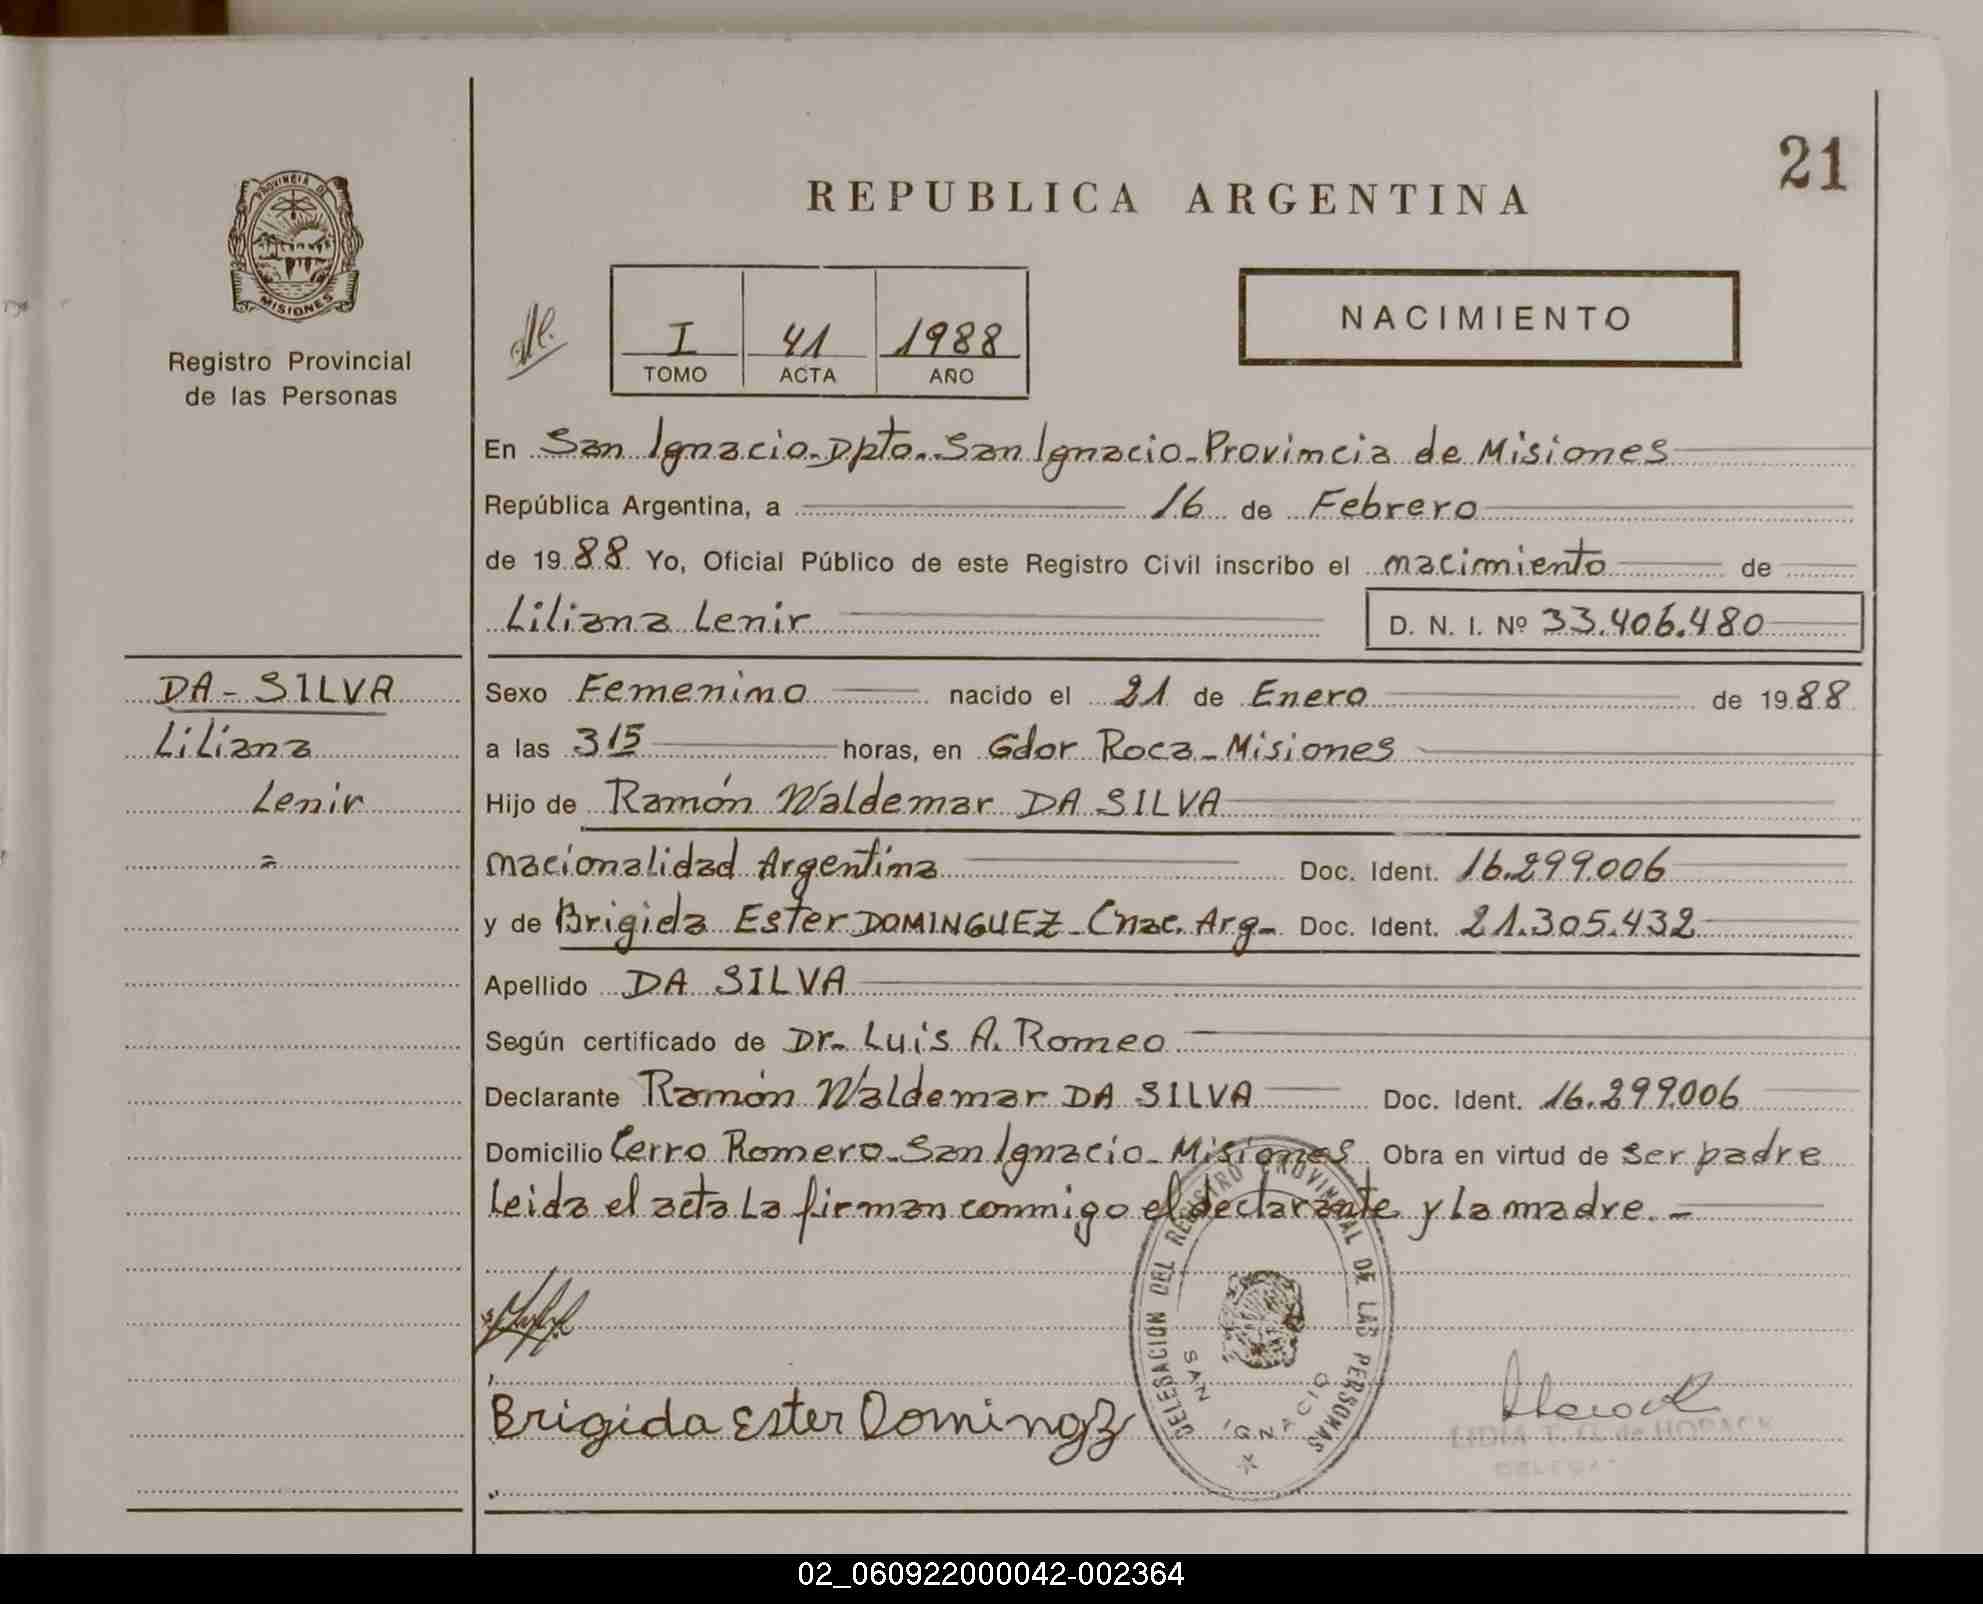 21
REPUBLICA ARGENTINA
PROVINCIA DE
MISIONES
Registro Provincial
de las Personas
I 41 1988
TOMO ACTA AÑO
NACIMIENTO
En San Ignacio-Dpto.-San Ignacio-Provincia de Misiones
República Argentina, a 16 de Febrero
de 1988 Yo, Oficial Público de este Registro Civil inscribo el nacimiento de
Liliana Lenir D. N. I. Nº 33.406.480
DA-SILVA
Liliana
Lenir
Sexo Femenino nacido el 21 de Enero de 1988
a las 315 horas, en Gdor Roca-Misiones
Hijo de Ramón Waldemar DA SILVA
nacionalidad Argentina Doc. Ident. 16.299.006
y de Brigida Ester DOMINGUEZ-(nac. Arg- Doc. Ident. 21.305.432
Apellido DA SILVA
Según certificado de Dr. Luis A. Romeo
Declarante Ramón Waldemar DA SILVA Doc. Ident. 16.299.006
Domicilio Cerro Romero-San Ignacio-Misiones Obra en virtud de ser padre
Leida el acta La firman conmigo el declarante y La madre.-
DELEGACION DEL REGISTRO PROVINCIAL DE LAS PERSONAS
SAN IGNACIO
Brigida Ester Domingz
LIDIA T. G. de HORACK
02_060922000042-002364